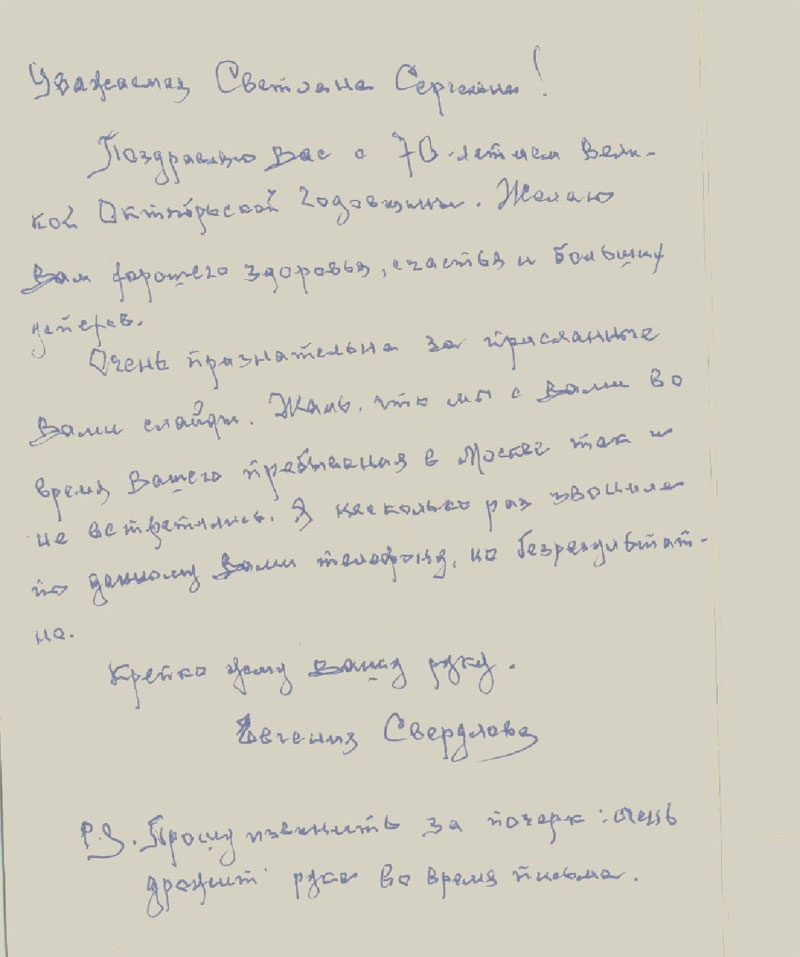 Уважаемая Светлана Сергеевна!
Поздравляю Вас с 70-летием Вели-
кой Октябрьской годовщины. Желаю
Вам хорошего здоровья, счастья и больших
успехов.
Очень признательна за присланные
Вами слайды. Жаль, что мы с Вами во
время Вашего пребывания в Москве так и
не встретились. Я несколько раз звонила
по данному Вами телефону, но безрезультат-
но.
Крепко жму Вашу руку.
Евгения Свердлова
P.S. Прошу извинить за почерк: очень
дрожит рука во время письма.